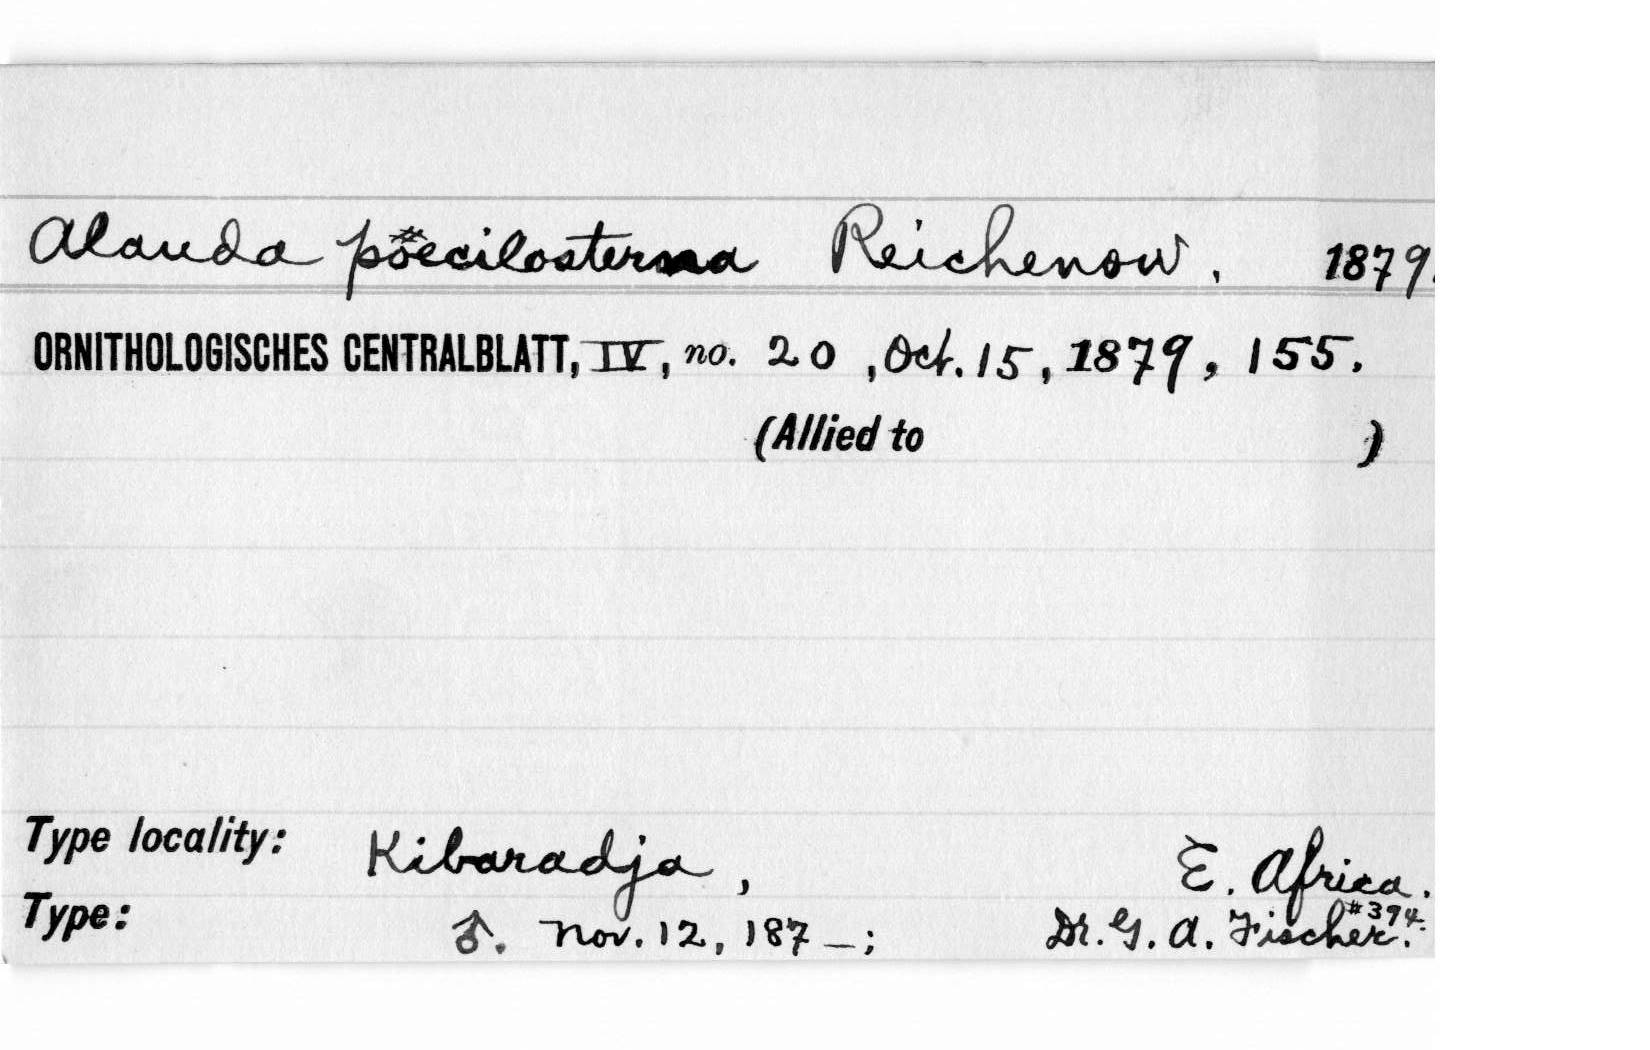 Alauda poecilosterna Reichenow, 1879.
ORNITHOLOGISCHES CENTRALBLATT, IV, no. 20, Oct. 15, 1879, 155.
(Allied to )
Type locality: Kibaradja, E. Africa.
Type: ♂. Nov. 12, 187_; Dr. G. A. Fischer. #394.